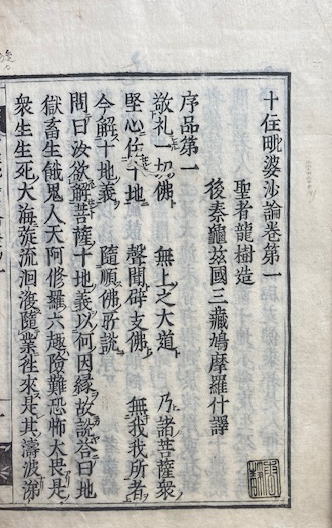 十住毗婆沙論卷第一
聖者龍樹造
後秦龜茲國三藏鳩摩羅什譯
序品第一
敬礼一切佛　無上之大道　乃諸菩薩衆
堅心住十地　聲聞辟支佛　無我我所者
今解十地義　隨順佛所說
問曰汝欲解菩薩十地義以何因緣故說答曰地
獄畜生餓鬼人天阿修羅六趣險難恐怖大畏是
衆生生死大海旋流洄澓隨業往來是其濤波涕